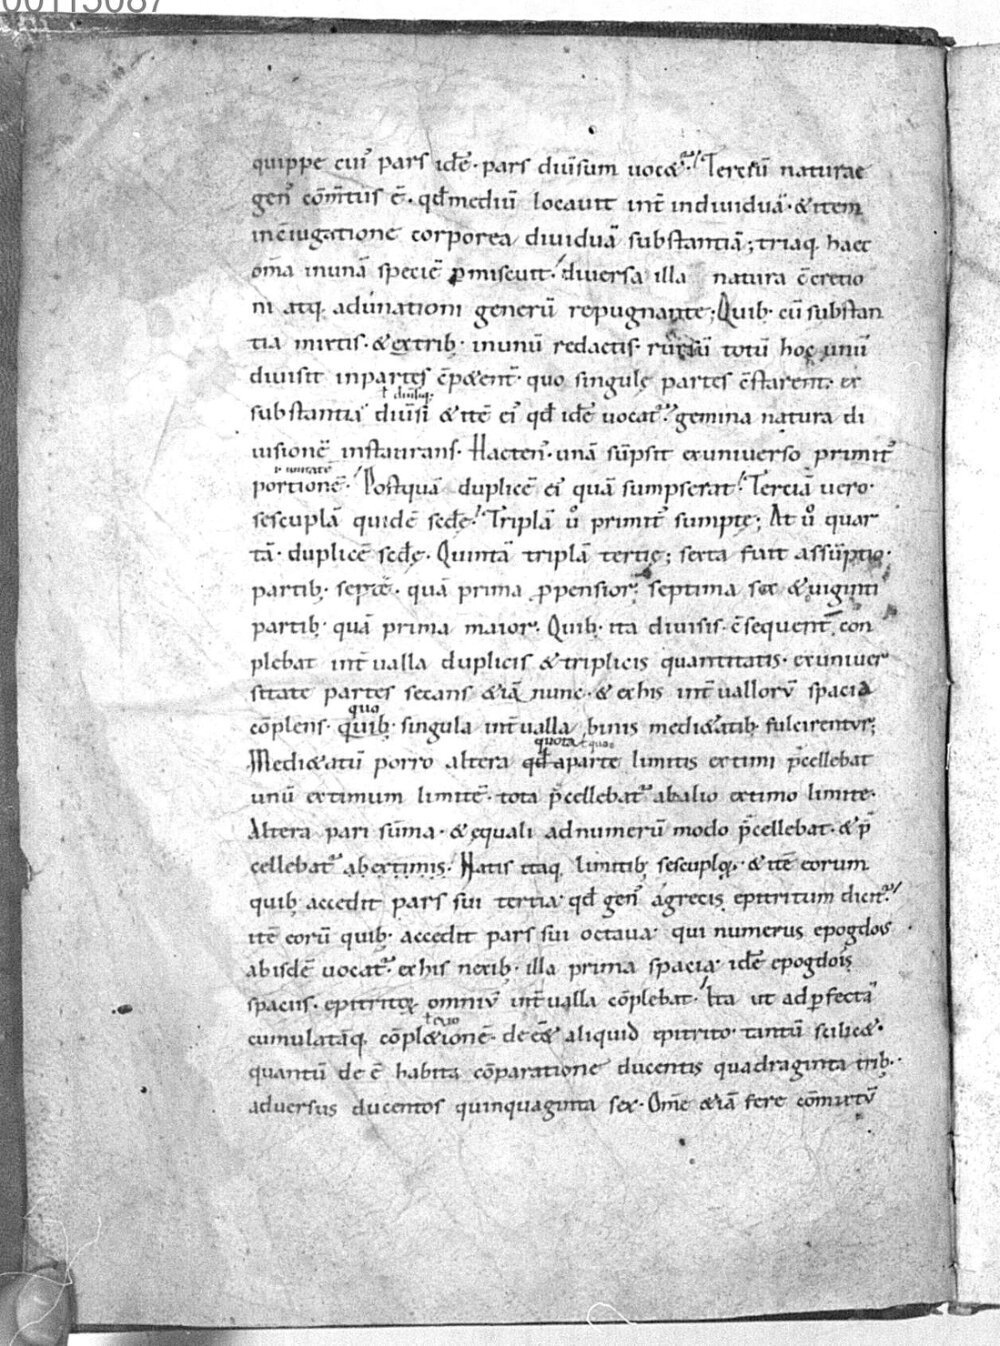 00115087
quippe eiuꝰ pars idē· pars diuīsum uocet᷑· Terciū naturae
genꝰ cōmixtiis ē· qd̄ mediū locauit int̄ indiuiduā· & item
inc̄iugatione corporea diuiduā substantiā; triaq; haec
om̄a inunā speciē ꝑmiscuit· diuersa illa natura c̄cretio
ni atq; adunationi generū repugnante; Quib; cū substan
tia mixtis· & extrib; inunū redactis· rursū totū hoc unū
diuisit inpartes c̄pet̄ent· quo singulę partes c̄starent· ex
ł diuīsiq;
substantia diuīsi & itē eiꝰ qd̄ idē uocat᷑· gemina natura di
uisionē instaurans· Hactenꝰ· unā sūpsit exuniuerso primitꝰ
ł unitatē
portionē· Postquā duplicē eiꝰ quā sumpserat· Terciā uero·
sescuplā quidē sedę· Triplā ū primitꝰ sumptę; At ū quar
tā· duplicē sedę· Quintā triplā tertię; sexta fuit assūptio·
partib; septē· quā prima ꝓpensior· septima sex & uiginti
partib; quā prima maior· Quib; ita diuisis· c̄sequent̄ con
plebat int̄ualla duplicis & triplicis quantitatis· exuniuer
sitate partes secans & iā nunc· & exhis int̄ualloꝝ spacia
quo
cōplens· quib; singula int̄ualla binis medietatib; fulcirentur;
quota ł quo
Medietatū porro altera qd̄ aparte limitis extimi p̄cellebat
unū extimum limitē· tota p̄cellebat᷑ abalio extimo limite·
Altera pari sūma· & ęquali adnumerū modo p̄cellebat· & p̄
cellebat᷑ abextimis· Natis itaq; limitib; sescuplę· & itē eorum
quib; accedit pars sui tertia· qd̄ genꝰ agrecis epitritum dicit᷑·
itē eorū quib; accedit pars sui octaua· qui numerus epogdos
abisdē uocat᷑· exhis nexib; illa prima spacia· idē epogdois
spaciis· epitritęq; omniū int̄ualla cōplebat· Ita ut adꝑfectā
cumulatāq; cōpletionē· deēet aliquid epitrito· tantū scilicet·
quantū deē habita cōparatione ducentis quadraginta trib;·
aduersus ducentos quinquaginta sex· Om̄e etiā fere cōmixtū